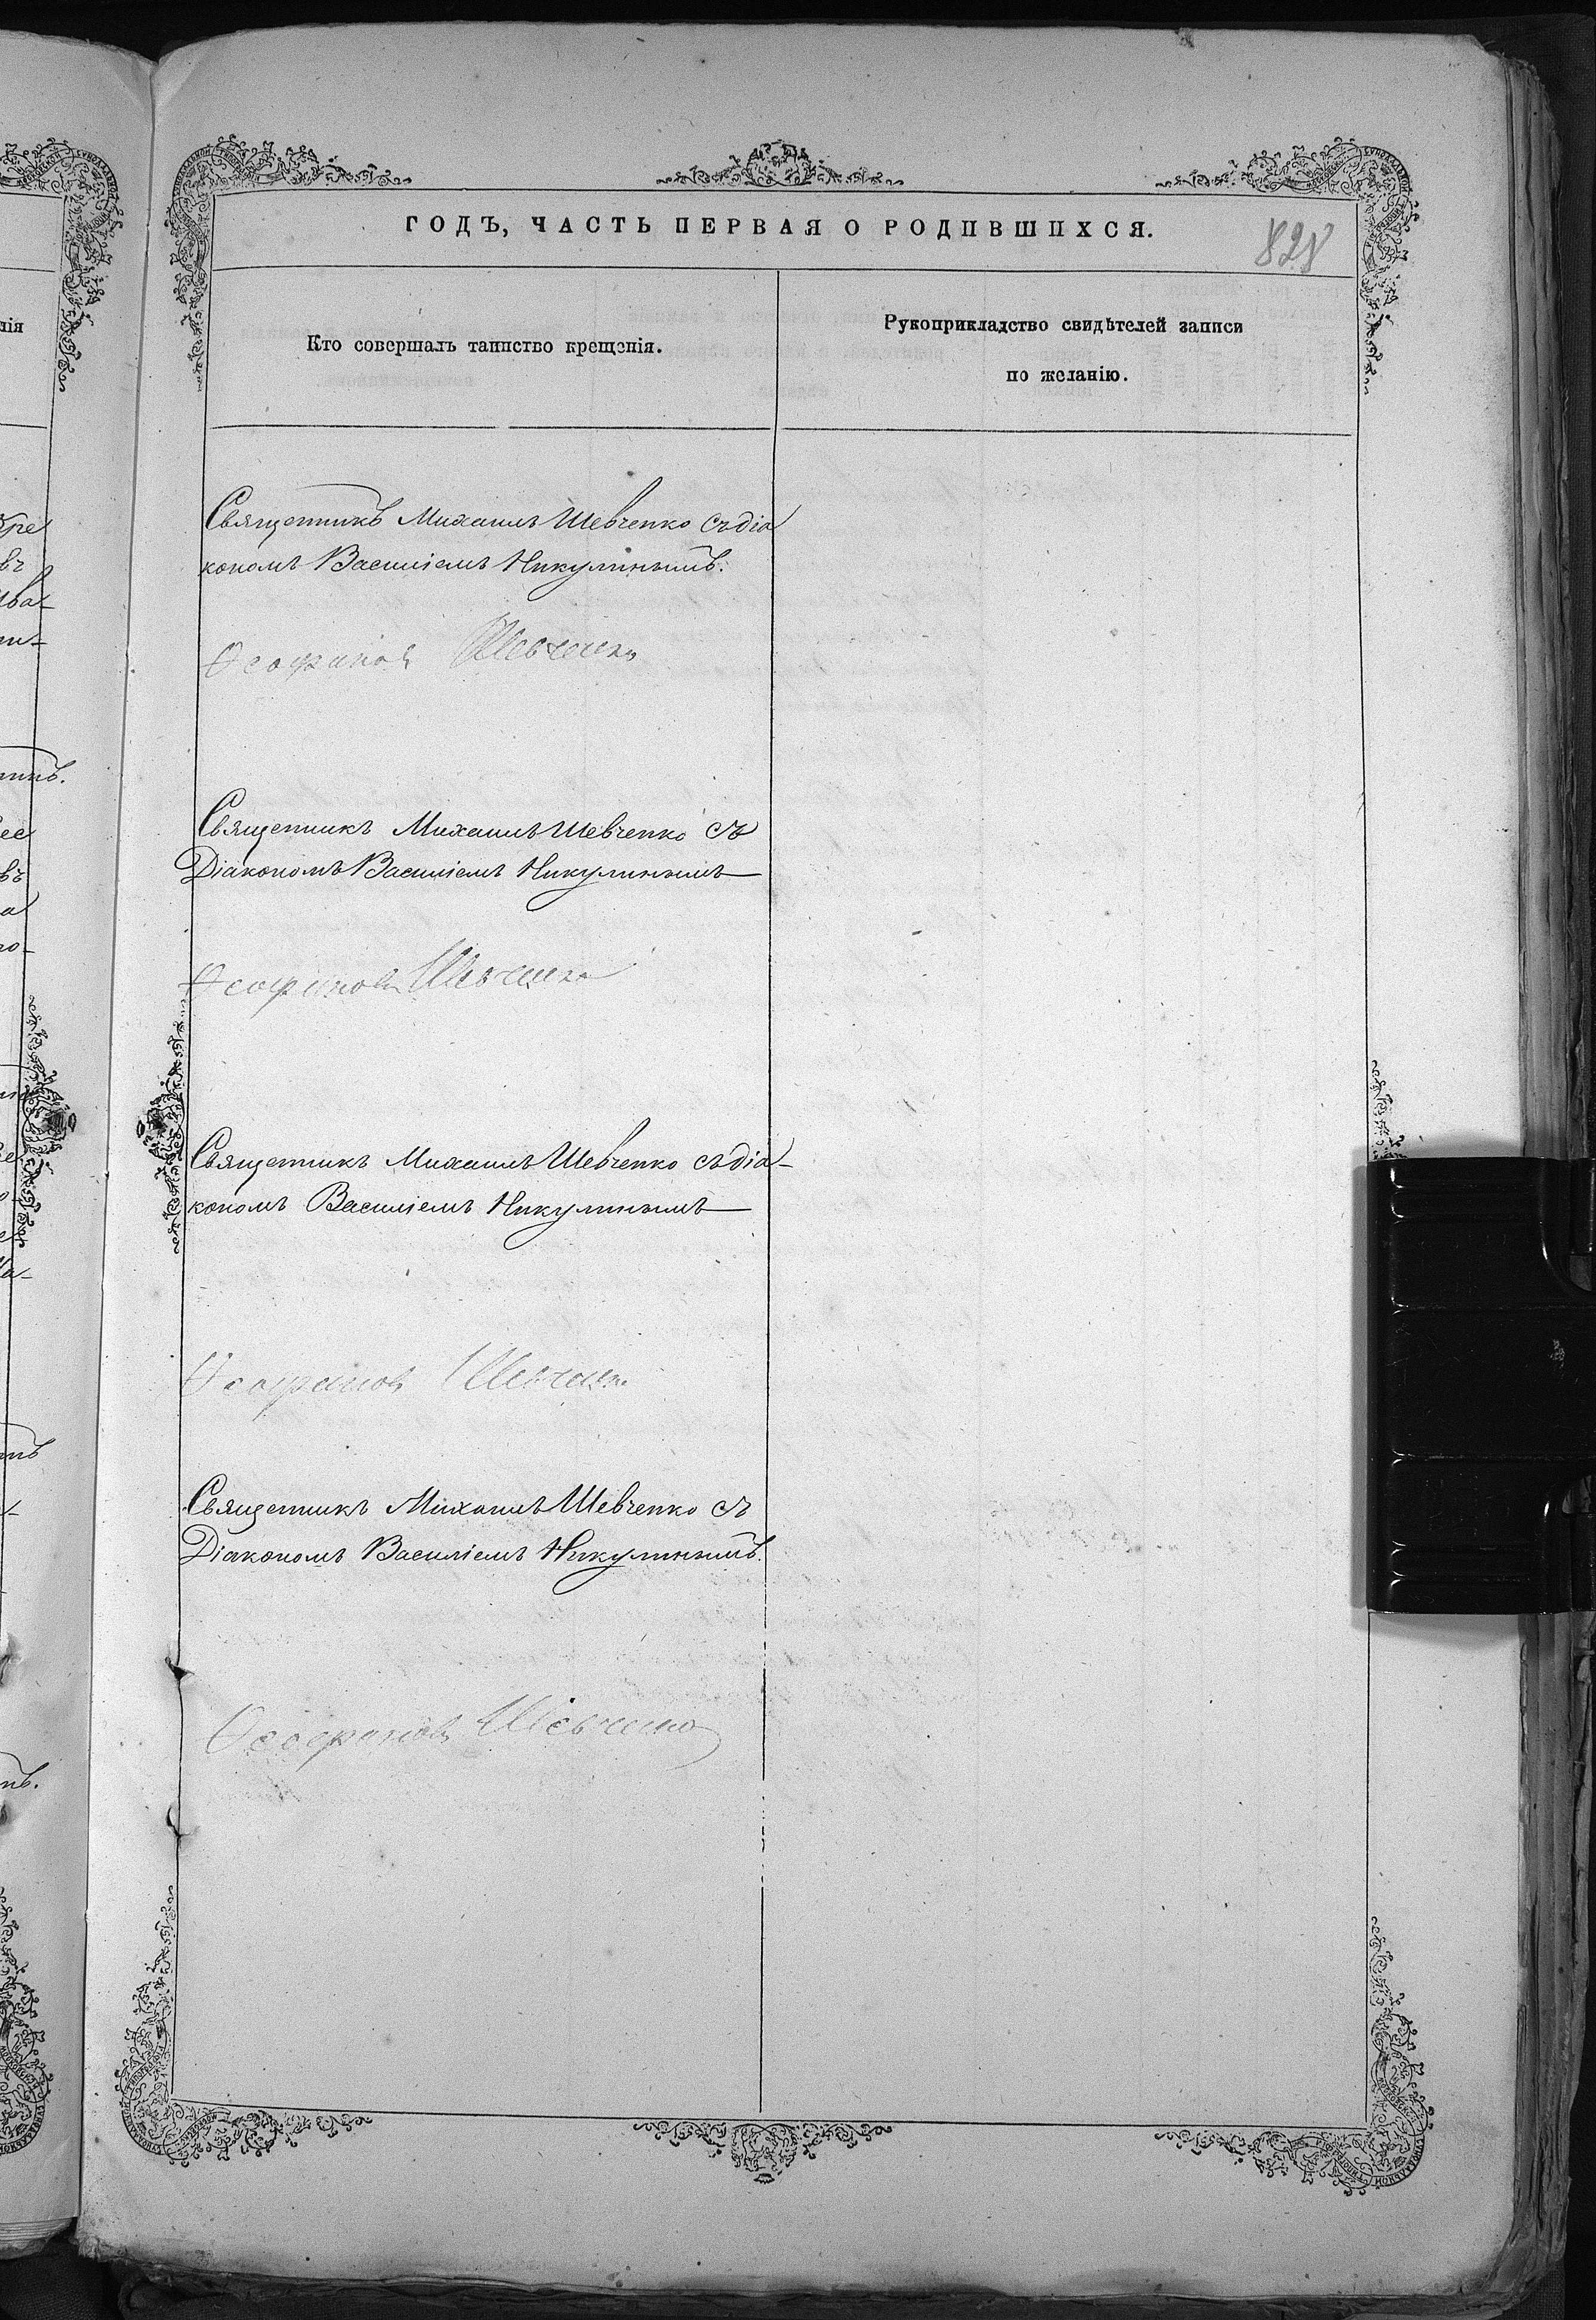 ГОДЪ, ЧАСТЬ ПЕРВАЯ О РОДИВШИХСЯ.
828
Кто совершалъ таинство крещенія.
Рукоприкладство свидѣтелей записи
по желанію.
Священникъ Михаилъ Шевченко съ діа
кономъ Василіемъ Никулинымъ.
Ѳеофановъ Шевченко
Священникъ Михаилъ Шевченко съ
Діакономъ Василіемъ Никулинымъ
Ѳеофановъ Шевченко
Священникъ Михаилъ Шевченко съ діа-
кономъ Василіемъ Никулинымъ
Ѳеофановъ Шевченко
Священникъ Михаилъ Шевченко съ
Діакономъ Василіемъ Никулинымъ.
Ѳеофановъ Шевченко